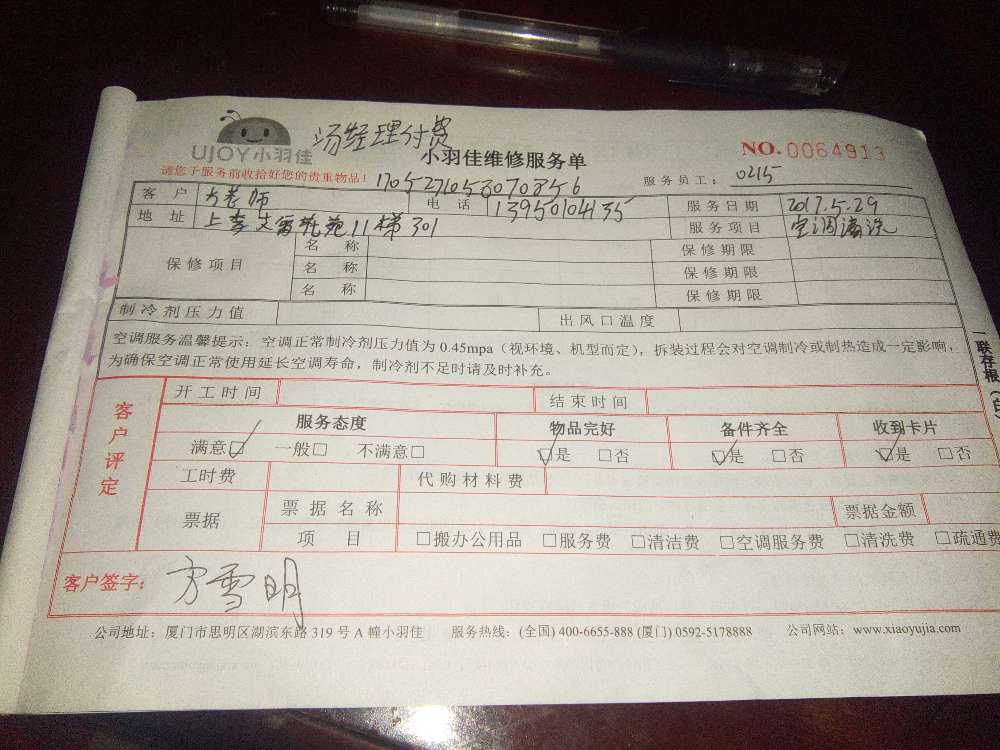 UJOY小羽佳
汤经理付费
小羽佳维修服务单
NO.0064913
请您于服务前收拾好您的贵重物品!
1705271058070856
服务员工: 0215
客户 方老师 电话 13950104135 服务日期 2017.5.29
地址 上李文雷花苑11梯301 服务项目 空调清洗
保修项目 名称 保修期限
名称 保修期限
名称 保修期限
制冷剂压力值 出风口温度
空调服务温馨提示:空调正常制冷剂压力值为 0.45mpa(视环境、机型而定),拆装过程会对空调制冷或制热造成一定影响,
为确保空调正常使用延长空调寿命,制冷剂不足时请及时补充。
一联存根(白
客户评定
开工时间 结束时间
服务态度 物品完好 备件齐全 收到卡片
满意☑ 一般□ 不满意□ ☑是 □否 ☑是 □否 ☑是 □否
工时费 代购材料费
票据 票据名称 票据金额
项目 □搬办公用品 □服务费 □清洁费 □空调服务费 □清洗费 □疏通费
客户签字: 方雪明
公司地址:厦门市思明区湖滨东路 319 号 A 幢小羽佳 服务热线:(全国) 400-6655-888 (厦门) 0592-5178888 公司网站:www.xiaoyujia.com